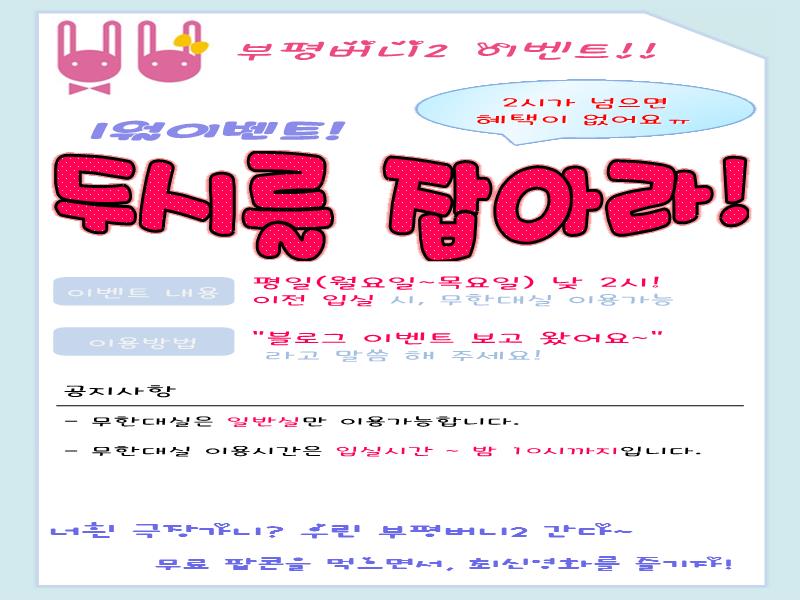 부평버니2 이벤트!!
2시가 넘으면
혜택이 없어요ㅠ
1월이벤트!
두시를 잡아라!
이벤트 내용
평일(월요일~목요일) 낮 2시!
이전 입실 시, 무한대실 이용가능
이용방법
"블로그 이벤트 보고 왔어요~"
라고 말씀 해 주세요!
공지사항
- 무한대실은 일반실만 이용가능합니다.
- 무한대실 이용시간은 입실시간 ~ 밤 10시까지입니다.
너흰 극장가니? 우린 부평버니2 간다~
무료 팝콘을 먹으면서, 최신영화를 즐기자!